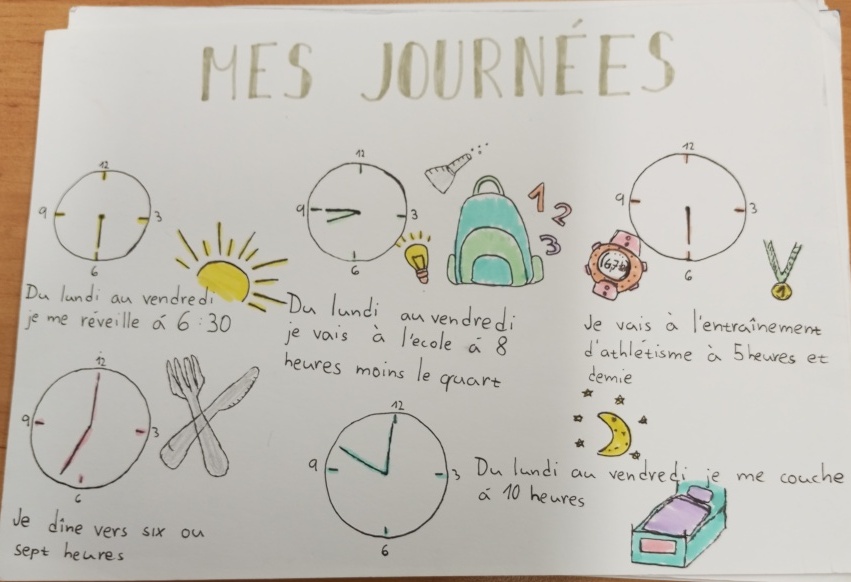 MES JOURNÉES
12
9
3
6
Du lundi au vendredi
je me réveille á 6:30
12
9
3
6
1
2
3
Du lundi au vendredi
je vais à l'ecole á 8
heures moins le quart
12
9
3
6
1
Je vais à l'entraînement
d'athlétisme à 5 heures et
demie
12
9
3
6
Je dîne vers six ou
sept heures
12
9
3
6
Du lundi au vendredi je me couche
á 10 heures